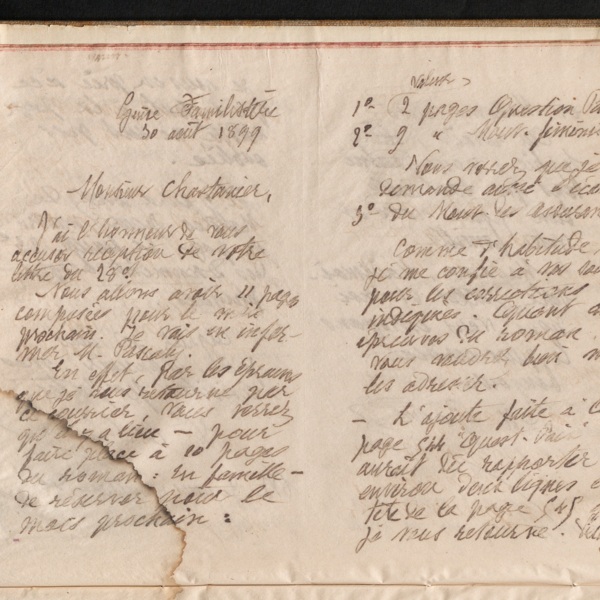 Guise Familistère
30 août 1899
Monsieur Chastanier,
J'ai l'honneur de vous
accuser réception de votre
lettre du 28 c!
Nous allons avoir 11 pages
composées pour le mois
prochain. Je vais en infor-
mer M. Pascaly.
En effet, par les épreuves
que je vous retourne par
ce courrier, vous verrez
qu'il y a lieu — pour
faire place à 10 pages
du roman : En famille —
de réserver pour le
mois prochain :
1º 2 pages Question
2º 9 " Mouv. fémini
Nous verrez que je
demande aussi d'éco
3º du Mouv. des assuran
Comme d'habitude,
je me confie à vos soi
pour les corrections
indiquées. Quant a
épreuves du roman,
vous voudrez bien m
les adresser.
— L'ajoute faite à l
page 544 "Quest.
aurait dû rapporter
environ deux lignes e
tête de la page 545
je vous retourne.